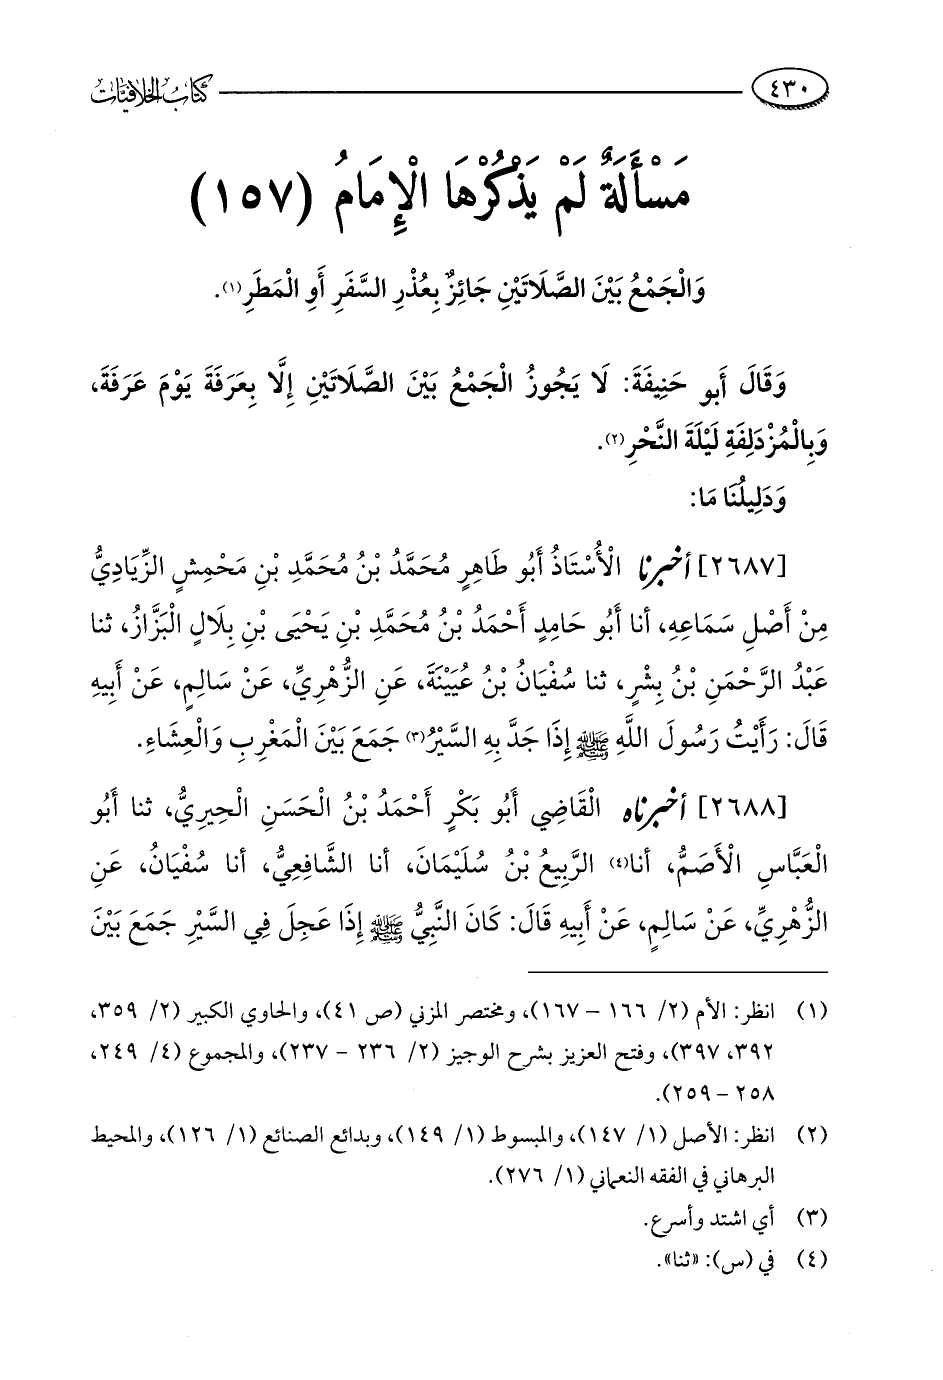 ٤٣٠ كتاب الخلافيات
مَسْأَلَةٌ لَمْ يَذْكُرْهَا الْإِمَامُ (١٥٧)
وَالْجَمْعُ بَيْنَ الصَّلَاتَيْنِ جَائِزٌ بِعُذْرِ السَّفَرِ أَوِ الْمَطَرِ(١).
وَقَالَ أَبو حَنِيفَةَ: لَا يَجُوزُ الْجَمْعُ بَيْنَ الصَّلَاتَيْنِ إِلَّا بِعَرَفَةَ يَوْمَ عَرَفَةَ،
وَبِالْمُزْدَلِفَةِ لَيْلَةَ النَّحْرِ(٢).
وَدَلِيلُنَا مَا:
[٢٦٨٧] أخبرنا الْأُسْتَاذُ أَبُو طَاهِرٍ مُحَمَّدُ بْنُ مُحَمَّدِ بْنِ مَحْمِشٍ الزِّيَادِيُّ
مِنْ أَصْلِ سَمَاعِهِ، أنا أَبُو حَامِدٍ أَحْمَدُ بْنُ مُحَمَّدِ بْنِ يَحْيَى بْنِ بِلَالٍ الْبَزَّازُ، ثنا
عَبْدُ الرَّحْمَنِ بْنُ بِشْرٍ، ثنا سُفْيَانُ بْنُ عُيَيْنَةَ، عَنِ الزُّهْرِيِّ، عَنْ سَالِمٍ، عَنْ أَبِيهِ
قَالَ: رَأَيْتُ رَسُولَ اللَّهِ ﷺ إِذَا جَدَّ بِهِ السَّيْرُ(٣) جَمَعَ بَيْنَ الْمَغْرِبِ وَالْعِشَاءِ.
[٢٦٨٨] أخبرناه الْقَاضِي أَبُو بَكْرٍ أَحْمَدُ بْنُ الْحَسَنِ الْحِيرِيُّ، ثنا أَبُو
الْعَبَّاسِ الْأَصَمُّ، أنا(٤) الرَّبِيعُ بْنُ سُلَيْمَانَ، أنا الشَّافِعِيُّ، أنا سُفْيَانُ، عَنِ
الزُّهْرِيِّ، عَنْ سَالِمٍ، عَنْ أَبِيهِ قَالَ: كَانَ النَّبِيُّ ﷺ إِذَا عَجِلَ فِي السَّيْرِ جَمَعَ بَيْنَ
(١) انظر: الأم (٢/ ١٦٦ - ١٦٧)، ومختصر المزني (ص ٤١)، والحاوي الكبير (٢/ ٣٥٩،
٣٩٢، ٣٩٧)، وفتح العزيز بشرح الوجيز (٢/ ٢٣٦ - ٢٣٧)، والمجموع (٤/ ٢٤٩،
٢٥٨ - ٢٥٩).
(٢) انظر: الأصل (١/ ١٤٧)، والمبسوط (١/ ١٤٩)، وبدائع الصنائع (١/ ١٢٦)، والمحيط
البرهاني في الفقه النعماني (١/ ٢٧٦).
(٣) أي اشتد وأسرع.
(٤) في (س): «ثنا».